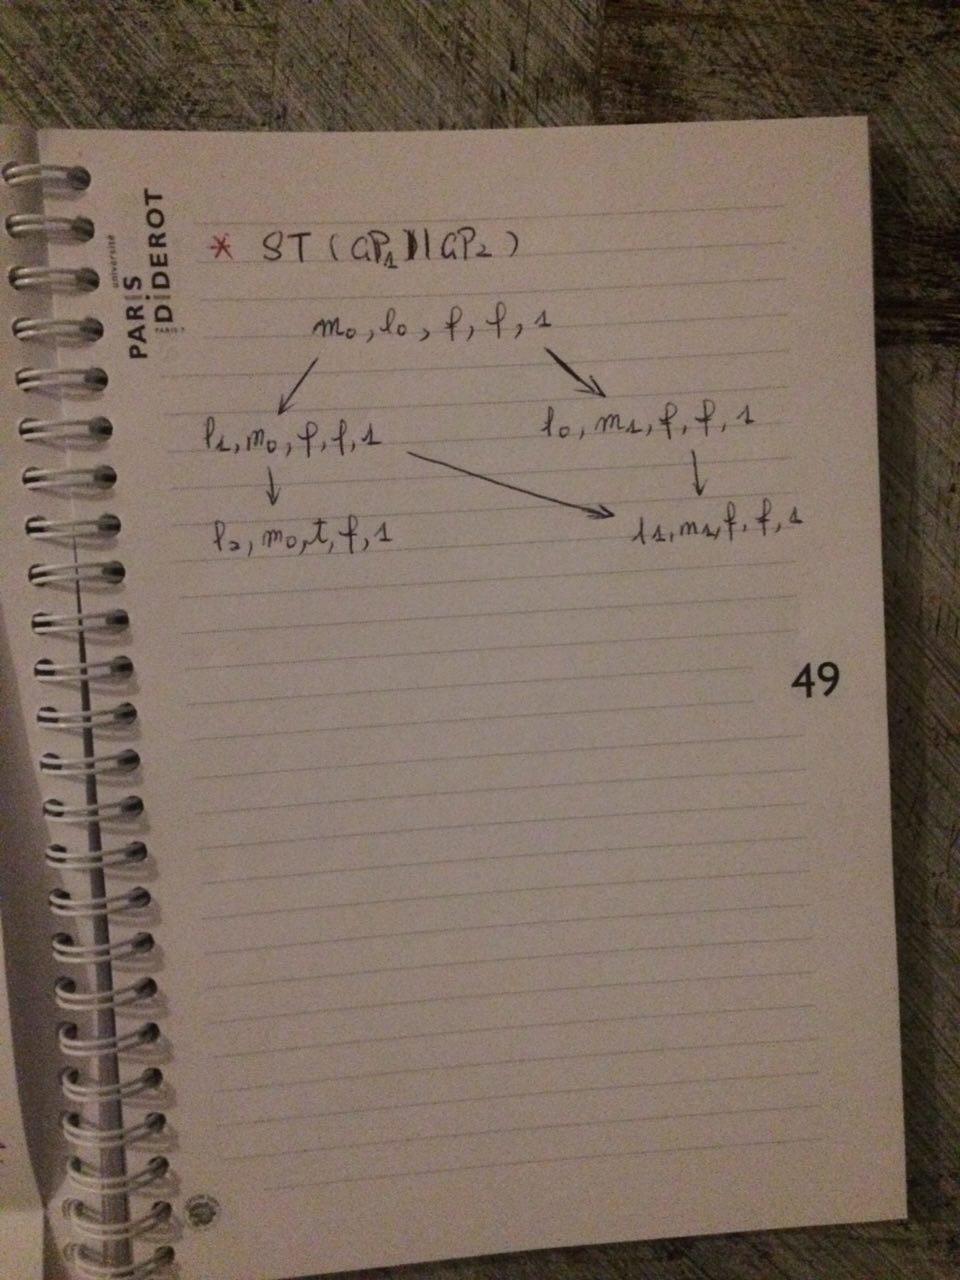 université
PARIS
DIDEROT
PARIS 7
* ST (GP₁ || GP₂)
m₀, l₀, f, f, 1
l₁, m₀, f, f, 1
l₀, m₁, f, f, 1
l₂, m₀, t, f, 1
l₁, m₁, f, f, 1
49